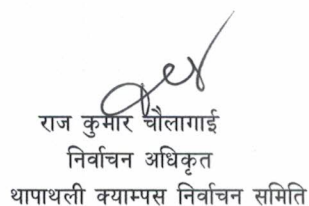 राज कुमार चौलागाई
निर्वाचन अधिकृत
थापाथली क्याम्पस निर्वाचन समिति